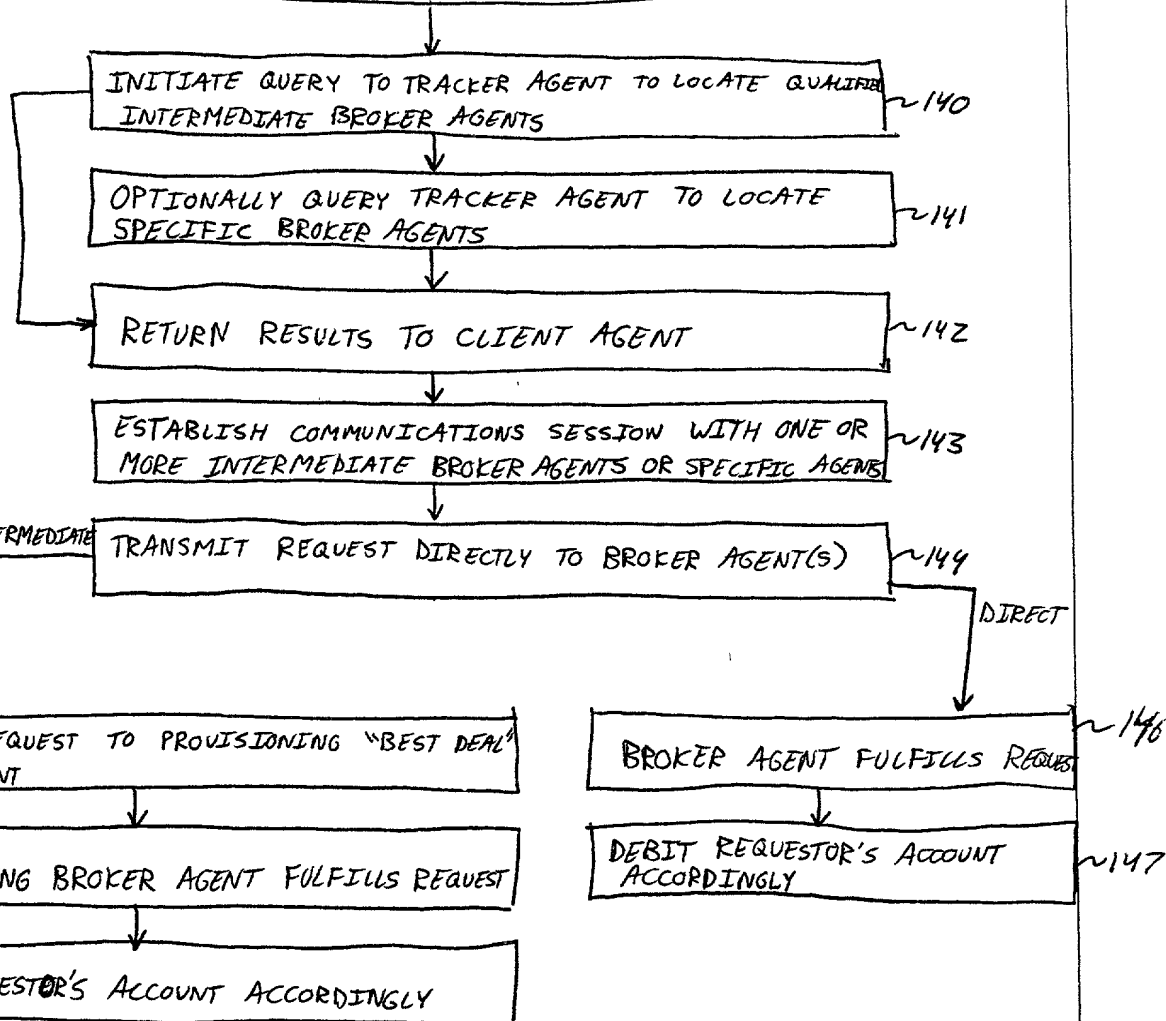 INITIATE QUERY TO TRACKER AGENT TO LOCATE QUALIFIED
INTERMEDIATE BROKER AGENTS
140
OPTIONALLY QUERY TRACKER AGENT TO LOCATE
SPECIFIC BROKER AGENTS
141
RETURN RESULTS TO CLIENT AGENT
142
ESTABLISH COMMUNICATIONS SESSION WITH ONE OR
MORE INTERMEDIATE BROKER AGENTS OR SPECIFIC AGENTS
143
ERMEDIATE
TRANSMIT REQUEST DIRECTLY TO BROKER AGENT(S)
144
DIRECT
EQUEST TO PROVISIONING "BEST DEAL"
NT
146
BROKER AGENT FULFILLS REQUEST
NG BROKER AGENT FULFILLS REQUEST
DEBIT REQUESTOR'S ACCOUNT
ACCORDINGLY
147
ESTOR'S ACCOUNT ACCORDINGLY